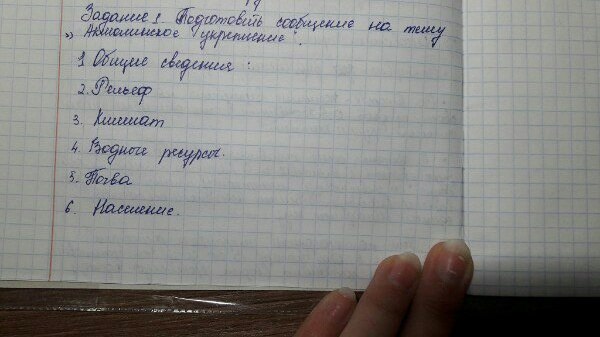 Задание 1. Подготовить сообщение на тему
„Акмолинское укрепление".
1 Общие сведения:
2. Рельеф
3. Климат
4. Водные ресурсы.
5. Почва
6. Население.